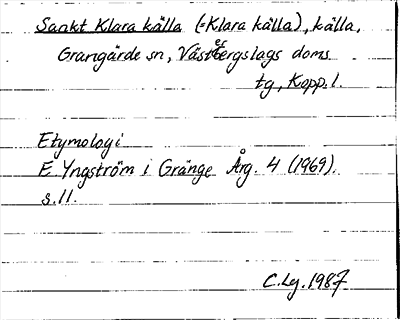 Sankt Klara källa (=Klara källa), källa,
Grangärde sn, Västerbergslags doms.
tg, Kopp. l.
Etymologi
E Yngström i Gränge Årg. 4 (1969).
s. 11.
C. Lg. 1987